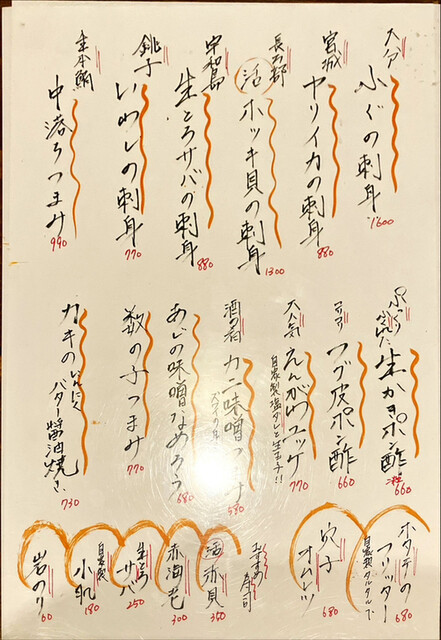 大分
ふぐの刺身
1600
宮城
ヤリイカの刺身
880
長万部
活ホッキ貝の刺身
1300
宇和島
生とろサバの刺身
880
銚子
いわしの刺身
770
生本鮪
中落ちつまみ
990
ぷっくり
生かきポン酢
660
コリコリ
フグ皮ポン酢
660
大人気
えんがわユッケ
自家製塩ダレと生玉子!!
770
酒の肴
カニ味噌つまみ
580
あじの味噌なめろう
680
数の子つまみ
770
カキのにんにく
バター醤油焼き
730
ホタテの
フリッター
自家製タルタルで
680
穴子
オムレツ
680
おすすめ
寿司
活赤貝
350
赤海老
300
生とろ
サバ
250
自家製
小肌
180
岩のり
60